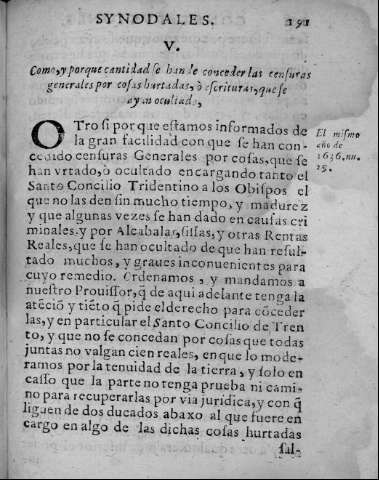 SYNODALES. 191
V.
Como, y porque cantidad se han de conceder las censuras
generales por cosas hurtadas, ò escrituras, que se
ayan ocultado,
OTro si por que estamos informados de
la gran facilidad con que se han con-
cedido censuras Generales por cosas, que se
han vrtado, ò ocultado encargando tanto el
Santo Concilio Tridentino a los Obispos el
que no las den sin mucho tiempo, y madurez
y que algunas vezes se han dado en causas cri
minales. y por Alcabalas, sisas, y otras Rentas
Reales, que se han ocultado de que han resul-
tado muchos, y graues inconuenientes para
cuyo remedio. Ordenamos, y mandamos a
nuestro Prouissor, q̃ de aqui adelante tenga la
atẽciõ y tiẽto q̃ pide el derecho para cõceder
las, y en particular el Santo Concilio de Tren
to, y que no se concedan por cosas que todas
juntas no valgan cien reales, en que lo mode-
ramos por la tenuidad de la tierra, y solo en
casso que la parte no tenga prueba ni cami-
no para recuperarlas por via juridica, y con q̃
liguen de dos ducados abaxo al que fuere en
cargo en algo de las dichas cosas hurtadas
sal-
El mismo
año de
1636, nu.
25.